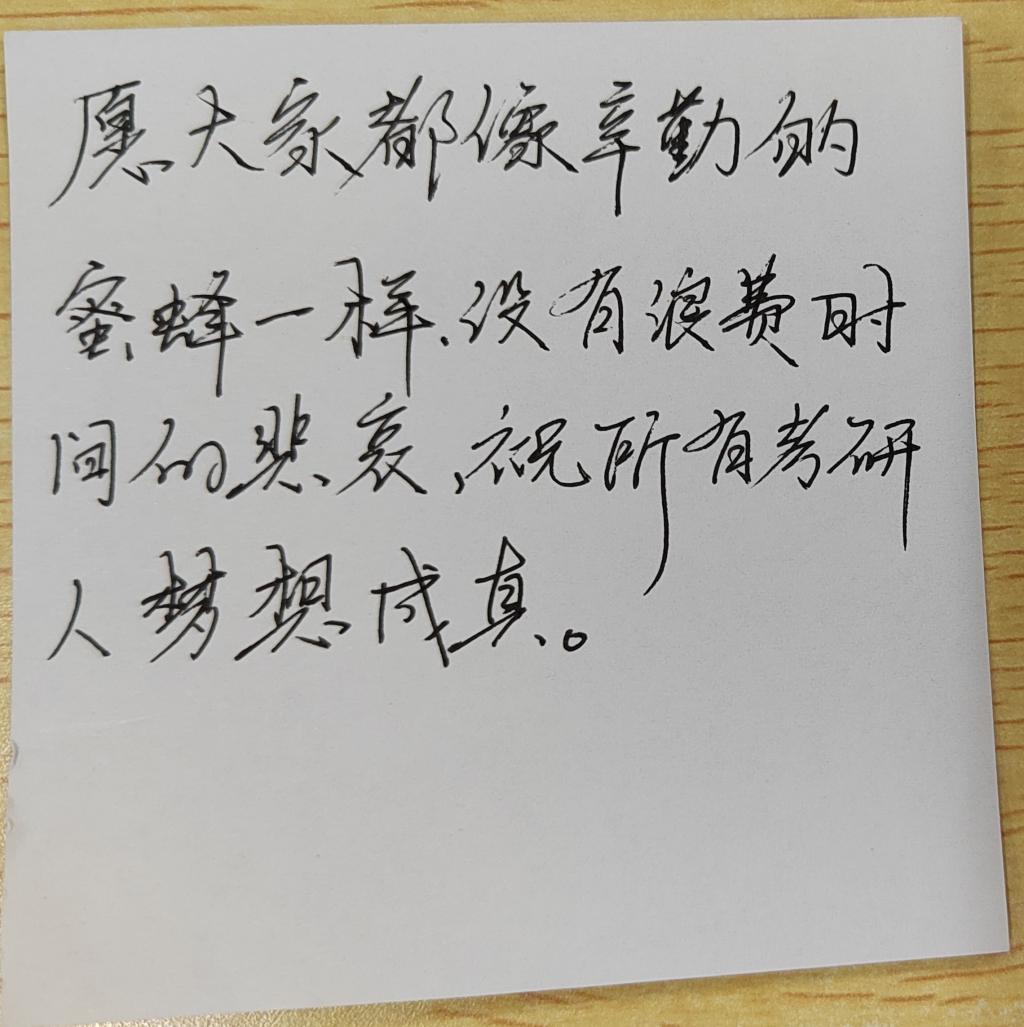 愿大家都像辛勤的
蜜蜂一样、没有浪费时
间的悲哀,祝所有考研
人梦想成真。